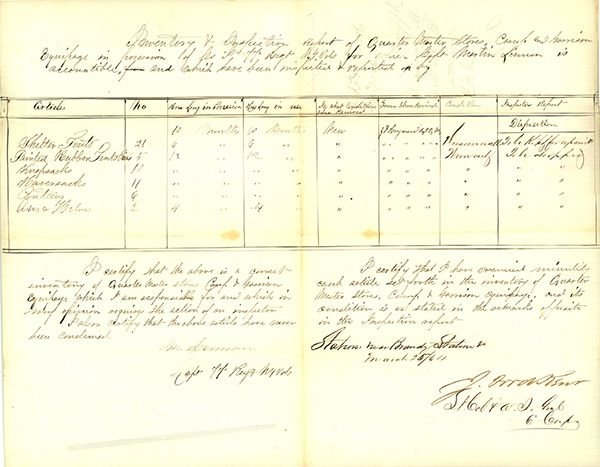 Inventory & Inspection Report of Quarter Master Stores, Camp and Garrison
Equipage in possession of 77 Regt N.Y. Vols for which Capt Martin Lennon is
accountible, and which have been inspected & reported on by
Articles No How Long in Possession How Long in use In What Condition when Received From Whom Received Condition Inspectors Report
Disposition
10 Months 10 Months New
Shelter Tents 21 9 " 9 " " Unserviceable To be
Painted Rubber 5 12 " 12 " " To be dropped
Knapsacks " " " "
Haversacks 11 " " " "
Canteens 6 " " " "
Axes & Helves 2 4 " 4 " "
I certify that the above is a correct
inventory of Quarter Master stores Camp & Garrison
Equipage which I am responsible for and which in
my opinion requires the action of an inspector
I also certify that the above article have never
been condemned
M Lennon
Capt 77 Regt N.Y. Vols
I certify that I have examined minutely
each article set forth in the inventory of Quarter
Master Stores, Camp & Garrison Equipage, and its
condition is as stated in the remarks opposite
in the Inspection report
Station near Brandy Station Va
March 25/64
J.
6 Corps